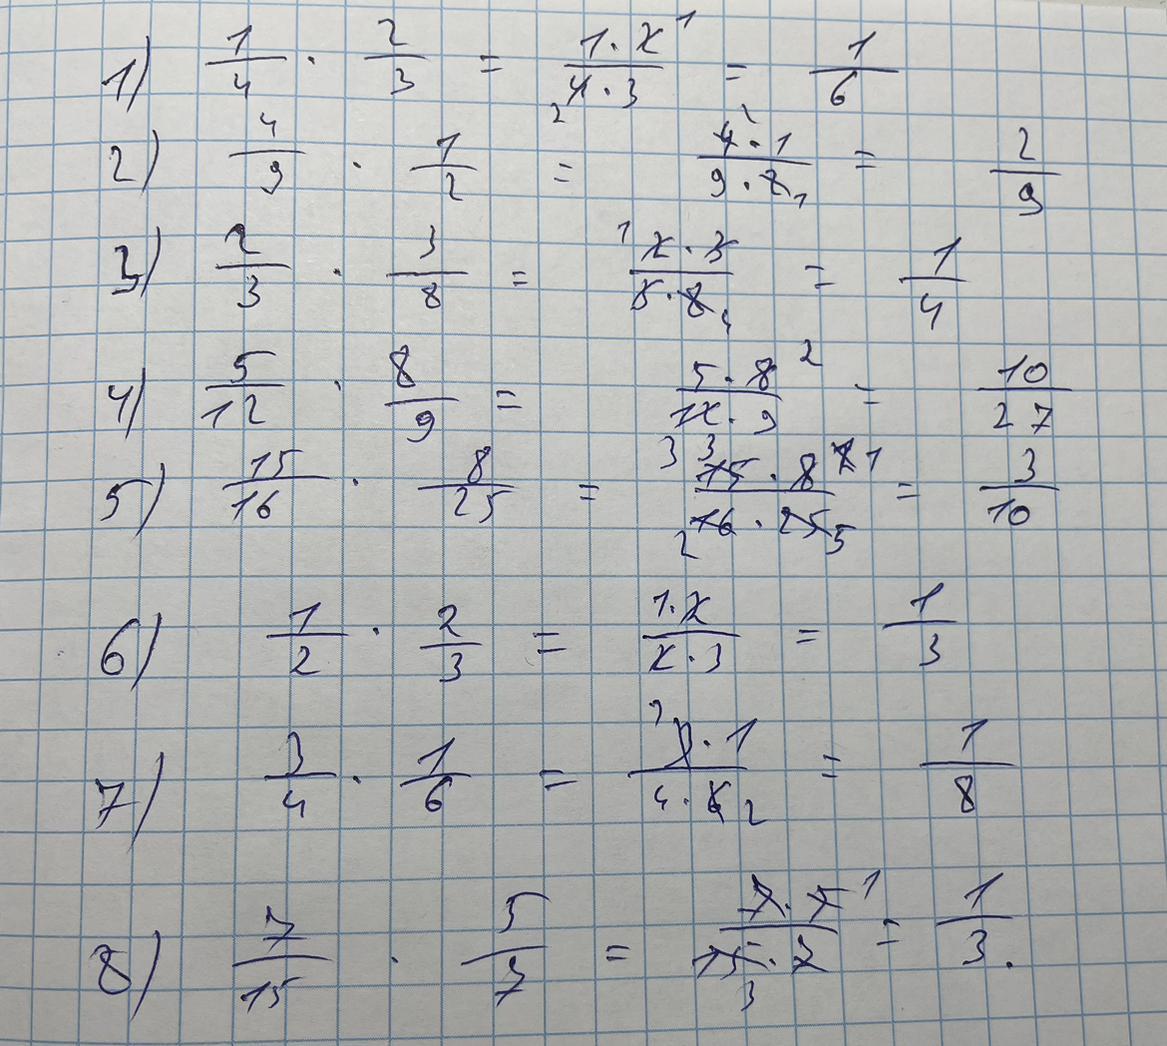 1) 1/4 · 2/3 = 1·2 1/4·3 2 = 1/6
2) 4/9 · 1/2 = 4 2·1/9·2 1 = 2/9
3) 2/3 · 3/8 = 1 2·3/3·8 4 = 1/4
4) 5/12 · 8/9 = 5·8 2/12·9 3 = 10/27
5) 15/16 · 8/25 = 3 15·8 1/2 16·25 5 = 3/10
6) 1/2 · 2/3 = 1·2/2·3 = 1/3
7) 3/4 · 1/6 = 1 3·1/4·6 2 = 1/8
8) 7/15 · 5/7 = 7·5 1/15·7 3 = 1/3.